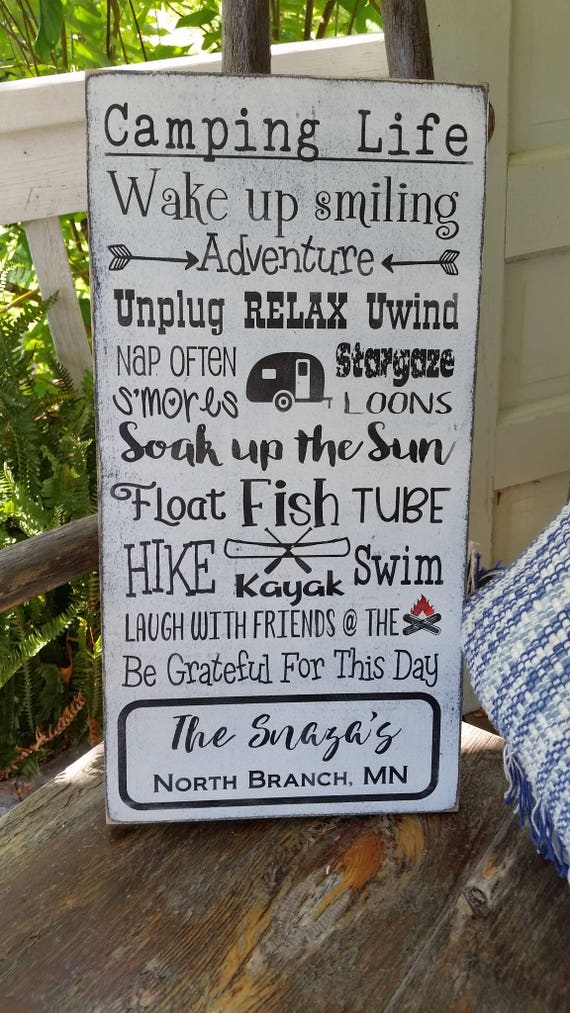 Camping Life
Wake up smiling
Adventure
Unplug RELAX Uwind
NAP OFTEN Stargaze
S'mores LOONS
Soak up the Sun
Float Fish TUBE
HIKE Kayak Swim
LAUGH WITH FRIENDS @ THE
Be Grateful For This Day
The Snaza's
NORTH BRANCH, MN